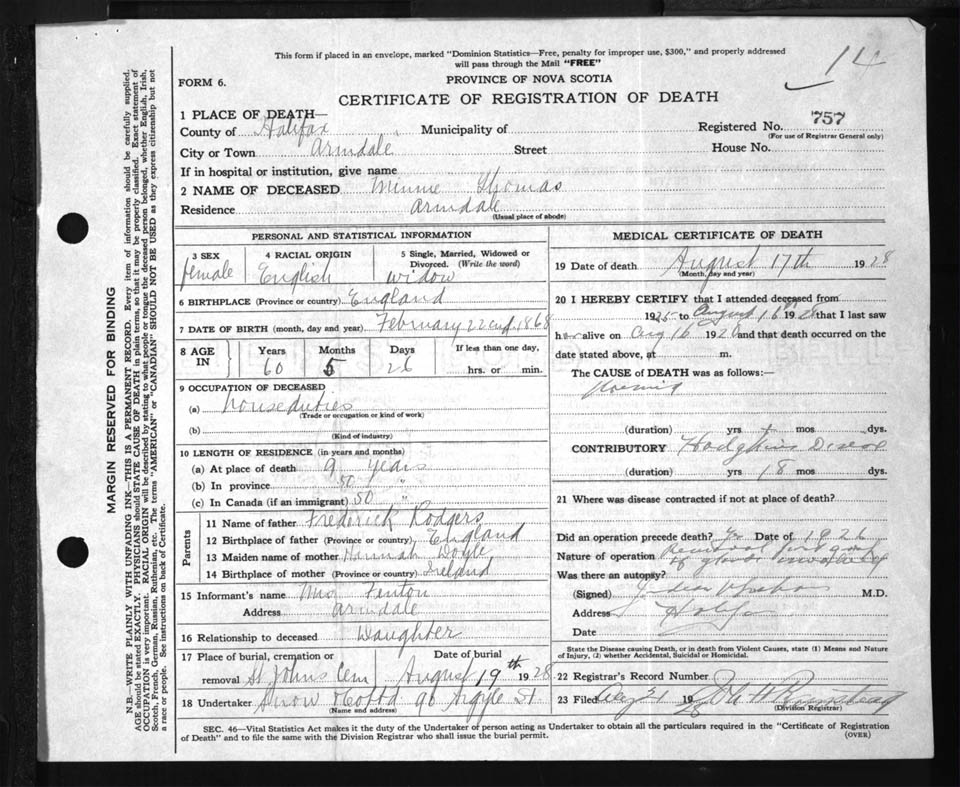 14
This form if placed in an envelope, marked "Dominion Statistics—Free, penalty for improper use, $300," and properly addressed
will pass through the Mail "FREE"
FORM 6.
PROVINCE OF NOVA SCOTIA
CERTIFICATE OF REGISTRATION OF DEATH
1 PLACE OF DEATH—
County of Halifax Municipality of Registered No. 757
(For use of Registrar General only)
City or Town Armdale Street House No.
If in hospital or institution, give name
2 NAME OF DECEASED Minnie Thomas
Residence Armdale
(Usual place of abode)
PERSONAL AND STATISTICAL INFORMATION
3 SEX female
4 RACIAL ORIGIN English
5 Single, Married, Widowed or
Divorced. (Write the word) widow
6 BIRTHPLACE (Province or country) England
7 DATE OF BIRTH (month, day and year) February 22nd 1868
8 AGE IN Years 60 Months 5 Days 26 If less than one day, hrs. or min.
9 OCCUPATION OF DECEASED
(a) house duties
(Trade or occupation or kind of work)
(b)
(Kind of industry)
10 LENGTH OF RESIDENCE (in years and months)
(a) At place of death 9 years
(b) In province 50 "
(c) In Canada (if an immigrant) 50 "
Parents
11 Name of father Frederick Rodgers
12 Birthplace of father (Province or country) England
13 Maiden name of mother Hannah Doyle
14 Birthplace of mother (Province or country) Ireland
15 Informant's name Mrs Fenton
Address Armdale
16 Relationship to deceased Daughter
17 Place of burial, cremation or Date of burial
removal St Johns Cem August 19th 1928
18 Undertaker Snow 90 Argyle St
(Name and address)
MEDICAL CERTIFICATE OF DEATH
19 Date of death August 17th 1928
(Month, day and year)
20 I HEREBY CERTIFY that I attended deceased from
1925 to August 16th 1928 that I last saw
h alive on Aug 16 1928 and that death occurred on the
date stated above, at m.
The CAUSE of DEATH was as follows:—
(duration) yrs mos dys.
CONTRIBUTORY Hodgkins Disease
(duration) yrs 18 mos dys.
21 Where was disease contracted if not at place of death?
Did an operation precede death? Date of 1926
Nature of operation Removal
of glands
Was there an autopsy?
(Signed) M.D.
Address Halifax
Date
State the Disease causing Death, or in death from Violent Causes, state (1) Means and Nature
of Injury, (2) whether Accidental, Suicidal or Homicidal.
22 Registrar's Record Number
23 Filed 31 1928
(Division Registrar)
SEC. 46—Vital Statistics Act makes it the duty of the Undertaker or person acting as Undertaker to obtain all the particulars required in the "Certificate of Registration
of Death" and to file the same with the Division Registrar who shall issue the burial permit.
(OVER)
MARGIN RESERVED FOR BINDING
N.B.—WRITE PLAINLY WITH UNFADING INK—THIS IS A PERMANENT RECORD. Every item of information should be carefully supplied.
AGE should be stated EXACTLY. PHYSICIANS should STATE CAUSE OF DEATH in plain terms, so that it may be properly classified. Exact statement of
OCCUPATION is very important. RACIAL ORIGIN will be described by stating to what people or tongue the deceased person belonged, whether English, Irish,
Scotch, French, German, Russian, Ruthenian, etc. The terms "AMERICAN" or "CANADIAN" SHOULD NOT BE USED as they express citizenship but not
a race or people. See instructions on back of Certificate.